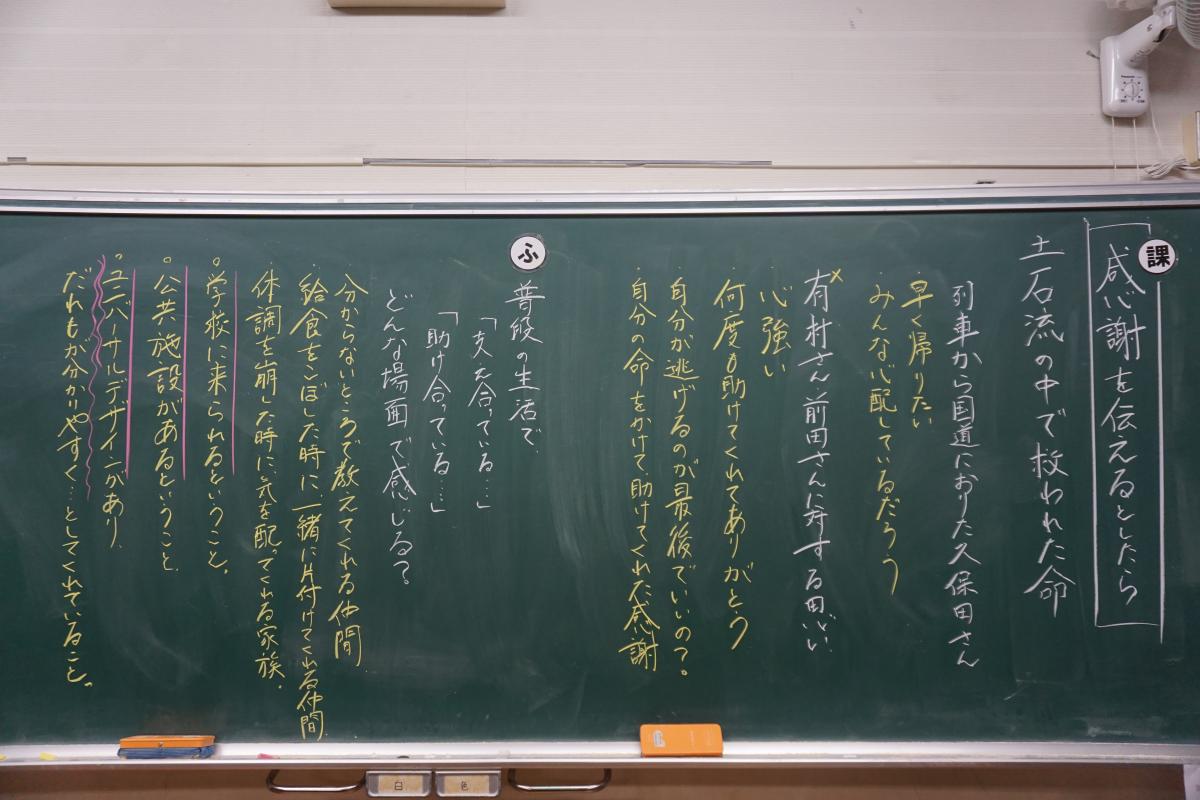 課
感謝を伝えるとしたら
土石流の中で救われた命
列車から国道におりた久保田さん
・早く帰りたい
・みんな心配しているだろう
有村さん前田さんに対する思い
・心強い
・何度も助けてくれてありがとう
・自分が逃げるのが最後でいいの?
・自分の命をかけて、助けてくれた感謝
ふ
普段の生活で
「支え合っている…」
「助け合っている…」
どんな場面で感じる?
・分からないところで教えてくれる仲間
・給食をこぼした時に、一緒に片付けてくれる仲間
・体調を崩した時に、気を配ってくれる家族。
・学校に来られるということ。
・公共施設があるということ
・ユニバーサルデザインがあり、
だれもが分かりやすく…としてくれていること。
白
色